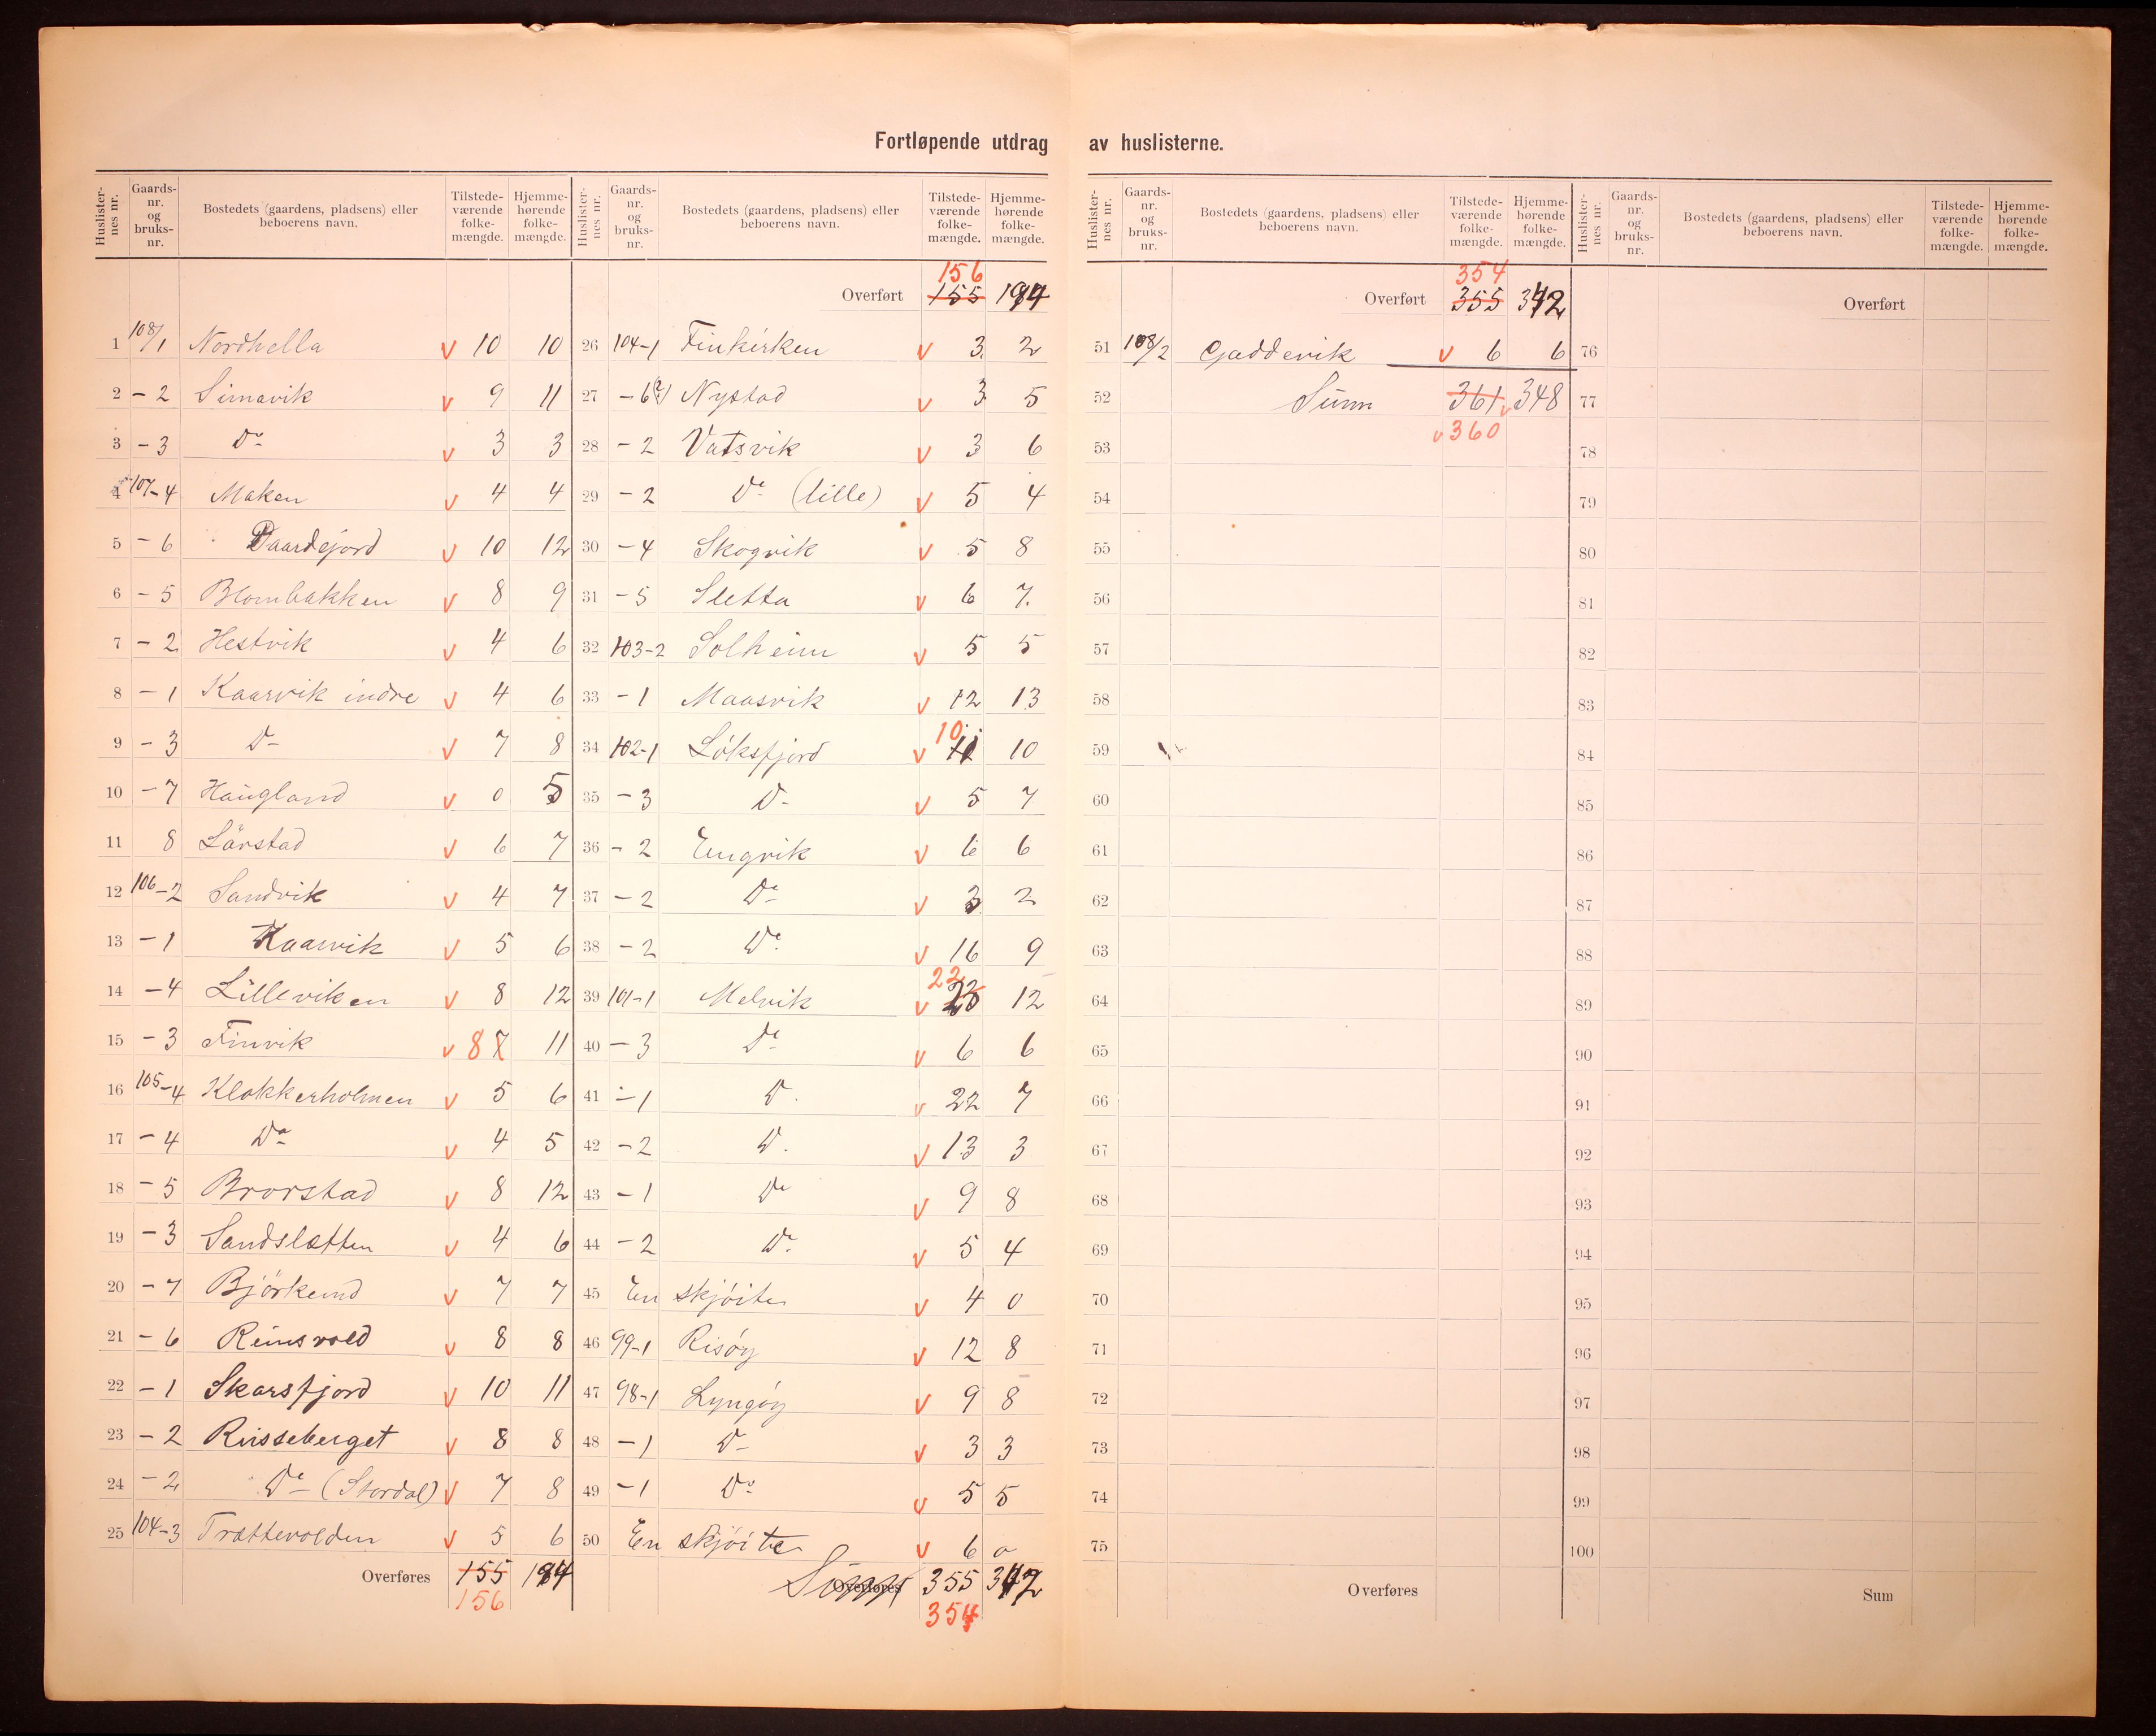 Fortløpende utdrag av huslisterne.
Huslister-nes nr. Gaards-nr. og bruks-nr. Bostedets (gaardens, pladsens) eller beboerens navn. Tilstede-værende folke-mængde. Hjemme-hørende folke-mængde.
1 108/1 Nordhella v 10 10
2 - 2 Simavik v 9 11
3 - 3 Do v 3 3
4 107-4 Maken v 4 4
5 - 6 Daardejord v 10 12
6 - 5 Blombakken v 8 9
7 - 2 Hestvik v 4 6
8 - 1 Kaarvik indre v 4 6
9 - 3 D- v 7 8
10 - 7 Haugland v 0 5
11 8 Lörstad v 6 7
12 106-2 Sandvik v 4 7
13 - 1 Kaarvik v 5 6
14 - 4 Lilleviken v 8 12
15 - 3 Finvik v 8 7 11
16 105-4 Klokkerholmen v 5 6
17 - 4 Do v 4 5
18 - 5 Brorstad v 8 12
19 - 3 Sandsletten v 4 6
20 - 7 Björkund v 7 7
21 - 6 Reinsvold v 8 8
22 - 1 Skarsfjord v 10 11
23 - 2 Risseberget v 8 8
24 - 2 Do (Stordal) v 7 8
25 104-3 Trættevolden v 5 6
Overføres 155 194
156
Huslister-nes nr. Gaards-nr. og bruks-nr. Bostedets (gaardens, pladsens) eller beboerens navn. Tilstede-værende folke-mængde. Hjemme-hørende folke-mængde.
156
Overført 155 194
26 104-1 Finkirken v 3 2
27 - 6 Nystad v 3 5
28 - 2 Vatsvik v 3 6
29 - 2 Do (lille) v 5 4
30 - 4 Skogvik v 5 8
31 - 5 Sletta v 6 7.
32 103-2 Solheim v 5 5
33 - 1 Maasvik v 12 13
34 102-1 Löksfjord v 10 11 10
35 - 3 D- v 5 7
36 - 2 Engvik v 6 6
37 - 2 Do v 3 2
38 - 2 Do v 16 9
39 101-1 Melvik v 22 23 12
40 - 3 Do v 6 6
41 - 1 D. v 22 7
42 - 2 D. v 13 3
43 - 1 Do v 9 8
44 - 2 Do v 5 4
45 En skjöite v 4 0
46 99-1 Risöy v 12 8
47 98-1 Lyngöy v 9 8
48 - 1 D- v 3 3
49 - 1 Do v 5 5
50 En skjöite v 6 0
Overføres Sum 355 342
354
Huslister-nes nr. Gaards-nr. og bruks-nr. Bostedets (gaardens, pladsens) eller beboerens navn. Tilstede-værende folke-mængde. Hjemme-hørende folke-mængde.
354
Overført 355 342
51 108/2 Gaddevik v 6 6
52 Sum 361 v 348
53 v 360
54
55
56
57
58
59
60
61
62
63
64
65
66
67
68
69
70
71
72
73
74
75
Overføres
Huslister-nes nr. Gaards-nr. og bruks-nr. Bostedets (gaardens, pladsens) eller beboerens navn. Tilstede-værende folke-mængde. Hjemme-hørende folke-mængde.
Overført
76
77
78
79
80
81
82
83
84
85
86
87
88
89
90
91
92
93
94
95
96
97
98
99
100
Sum